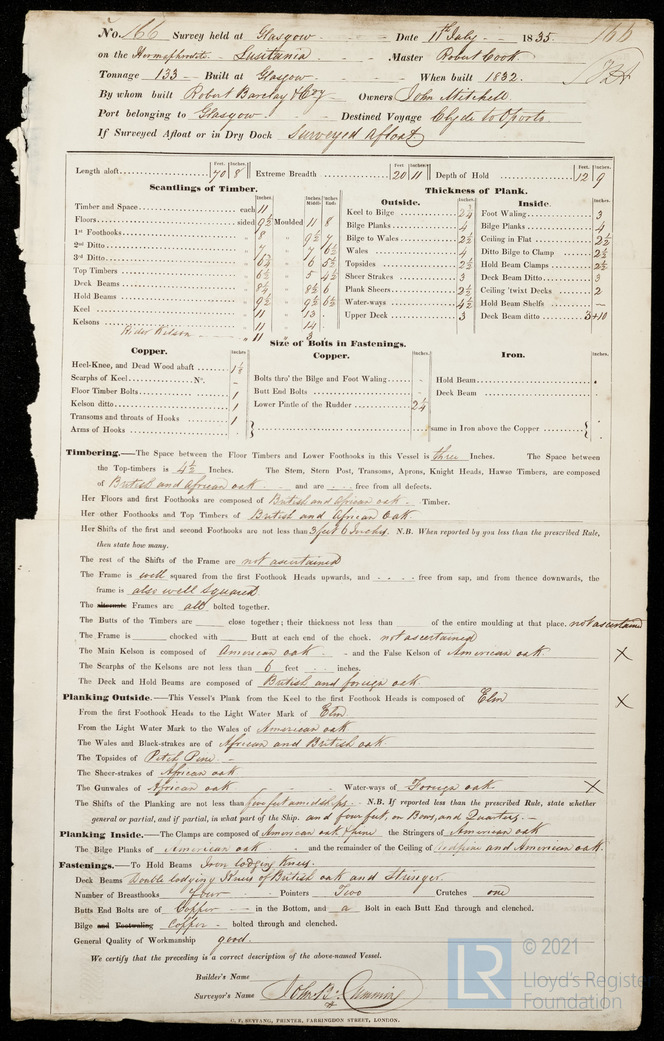 No. 166 Survey held at Glasgow Date 11th July 1835. 166
on the Hermaphrodite Lusitania Master Robert Cook
Tonnage 133 Built at Glasgow When built 1832.
By whom built Robert Barclay & Coy Owners John Mitchell
Port belonging to Glasgow Destined Voyage Clyde to Oporto
If Surveyed Afloat or in Dry Dock Surveyed Afloat
Feet. Inches. Feet Inches. Feet. Inches.
Length aloft 70 8 Extreme Breadth 20 11 Depth of Hold 12 9
Scantlings of Timber.
Inches. Inches. Middle Inches. Ends
Timber and Space each 11
Floors sided 9½ Moulded 11 8
1st Foothooks 8 " 9½ 7
2nd Ditto 7 " 7 6½
3rd Ditto 6¾ " 6 5½
Top Timbers 6½ " 5 4½
Deck Beams 8¼ " 8½ 6
Hold Beams 9½ " 9½ 6½
Keel 11 " 13
Kelsons 11 " 14
Rider Kelson " 11 " 3
Thickness of Plank.
Outside. Inches.
Keel to Bilge 2¾
Bilge Planks 4
Bilge to Wales 2½
Wales 4
Topsides 2½
Sheer Strakes 3
Plank Sheers 2½
Water-ways 4½
Upper Deck 3
Inside. Inches.
Foot Waling 3
Bilge Planks 4
Ceiling in Flat 2½
Ditto Bilge to Clamp 2½
Hold Beam Clamps 2½
Deck Beam Ditto 3
Ceiling 'twixt Decks 2
Hold Beam Shelfs —
Deck Beam ditto 3+10
Size of Bolts in Fastenings.
Copper. Inches.
Heel-Knee, and Dead Wood abaft 1⅛
Scarphs of Keel No. -
Floor Timber Bolts 1
Kelson ditto 1
Transoms and throats of Hooks 1
Arms of Hooks
Copper. Inches.
Bolts thro' the Bilge and Foot Waling -
Butt End Bolts -
Lower Pintle of the Rudder 2¼
Iron. Inches.
Hold Beam
Deck Beam
same in Iron above the Copper
Timbering.—The Space between the Floor Timbers and Lower Foothooks in this Vessel is three Inches. The Space between
the Top-timbers is 4½ Inches. The Stem, Stern Post, Transoms, Aprons, Knight Heads, Hawse Timbers, are composed
of British and African oak and are free from all defects.
Her Floors and first Foothooks are composed of British and African oak Timber.
Her other Foothooks and Top Timbers of British and African Oak
Her Shifts of the first and second Foothooks are not less than 3 feet 6 Inches. N.B. When reported by you less than the prescribed Rule,
then state how many.
The rest of the Shifts of the Frame are not ascertained
The Frame is well squared from the first Foothook Heads upwards, and free from sap, and from thence downwards, the
frame is also well squared
The alternate Frames are all bolted together.
The Butts of the Timbers are close together; their thickness not less than of the entire moulding at that place. not ascertained
The Frame is chocked with Butt at each end of the chock. not ascertained
The Main Kelson is composed of American oak and the False Kelson of American oak X
The Scarphs of the Kelsons are not less than 6 feet inches.
The Deck and Hold Beams are composed of British and foreign oak
Planking Outside.—This Vessel's Plank from the Keel to the first Foothook Heads is composed of Elm X
From the first Foothook Heads to the Light Water Mark of Elm
From the Light Water Mark to the Wales of American oak
The Wales and Black-strakes are of African and British oak
The Topsides of Pitch Pine
The Sheer-strakes of African oak
The Gunwales of African oak Water-ways of Foreign oak X
The Shifts of the Planking are not less than five feet amidships N.B. If reported less than the prescribed Rule, state whether
general or partial, and if partial, in what part of the Ship. and four feet, on Bows, and Quarters.
Planking Inside.—The Clamps are composed of American oak & pine the Stringers of American oak
The Bilge Planks of American oak and the remainder of the Ceiling of red pine and American oak.
Fastenings.—To Hold Beams Iron lodging Knees.
Deck Beams Double lodging Knees of British oak and Stringer.
Number of Breasthooks four Pointers Two Crutches one
Butts End Bolts are of Copper in the Bottom, and a Bolt in each Butt End through and clenched.
Bilge and Footwaling Copper bolted through and clenched.
General Quality of Workmanship good.
We certify that the preceding is a correct description of the above-named Vessel.
Builder's Name
Surveyor's Name
C. F. SEYFANG, PRINTER, FARRINGDON STREET, LONDON.
LR © 2021
Lloyd's Register
Foundation